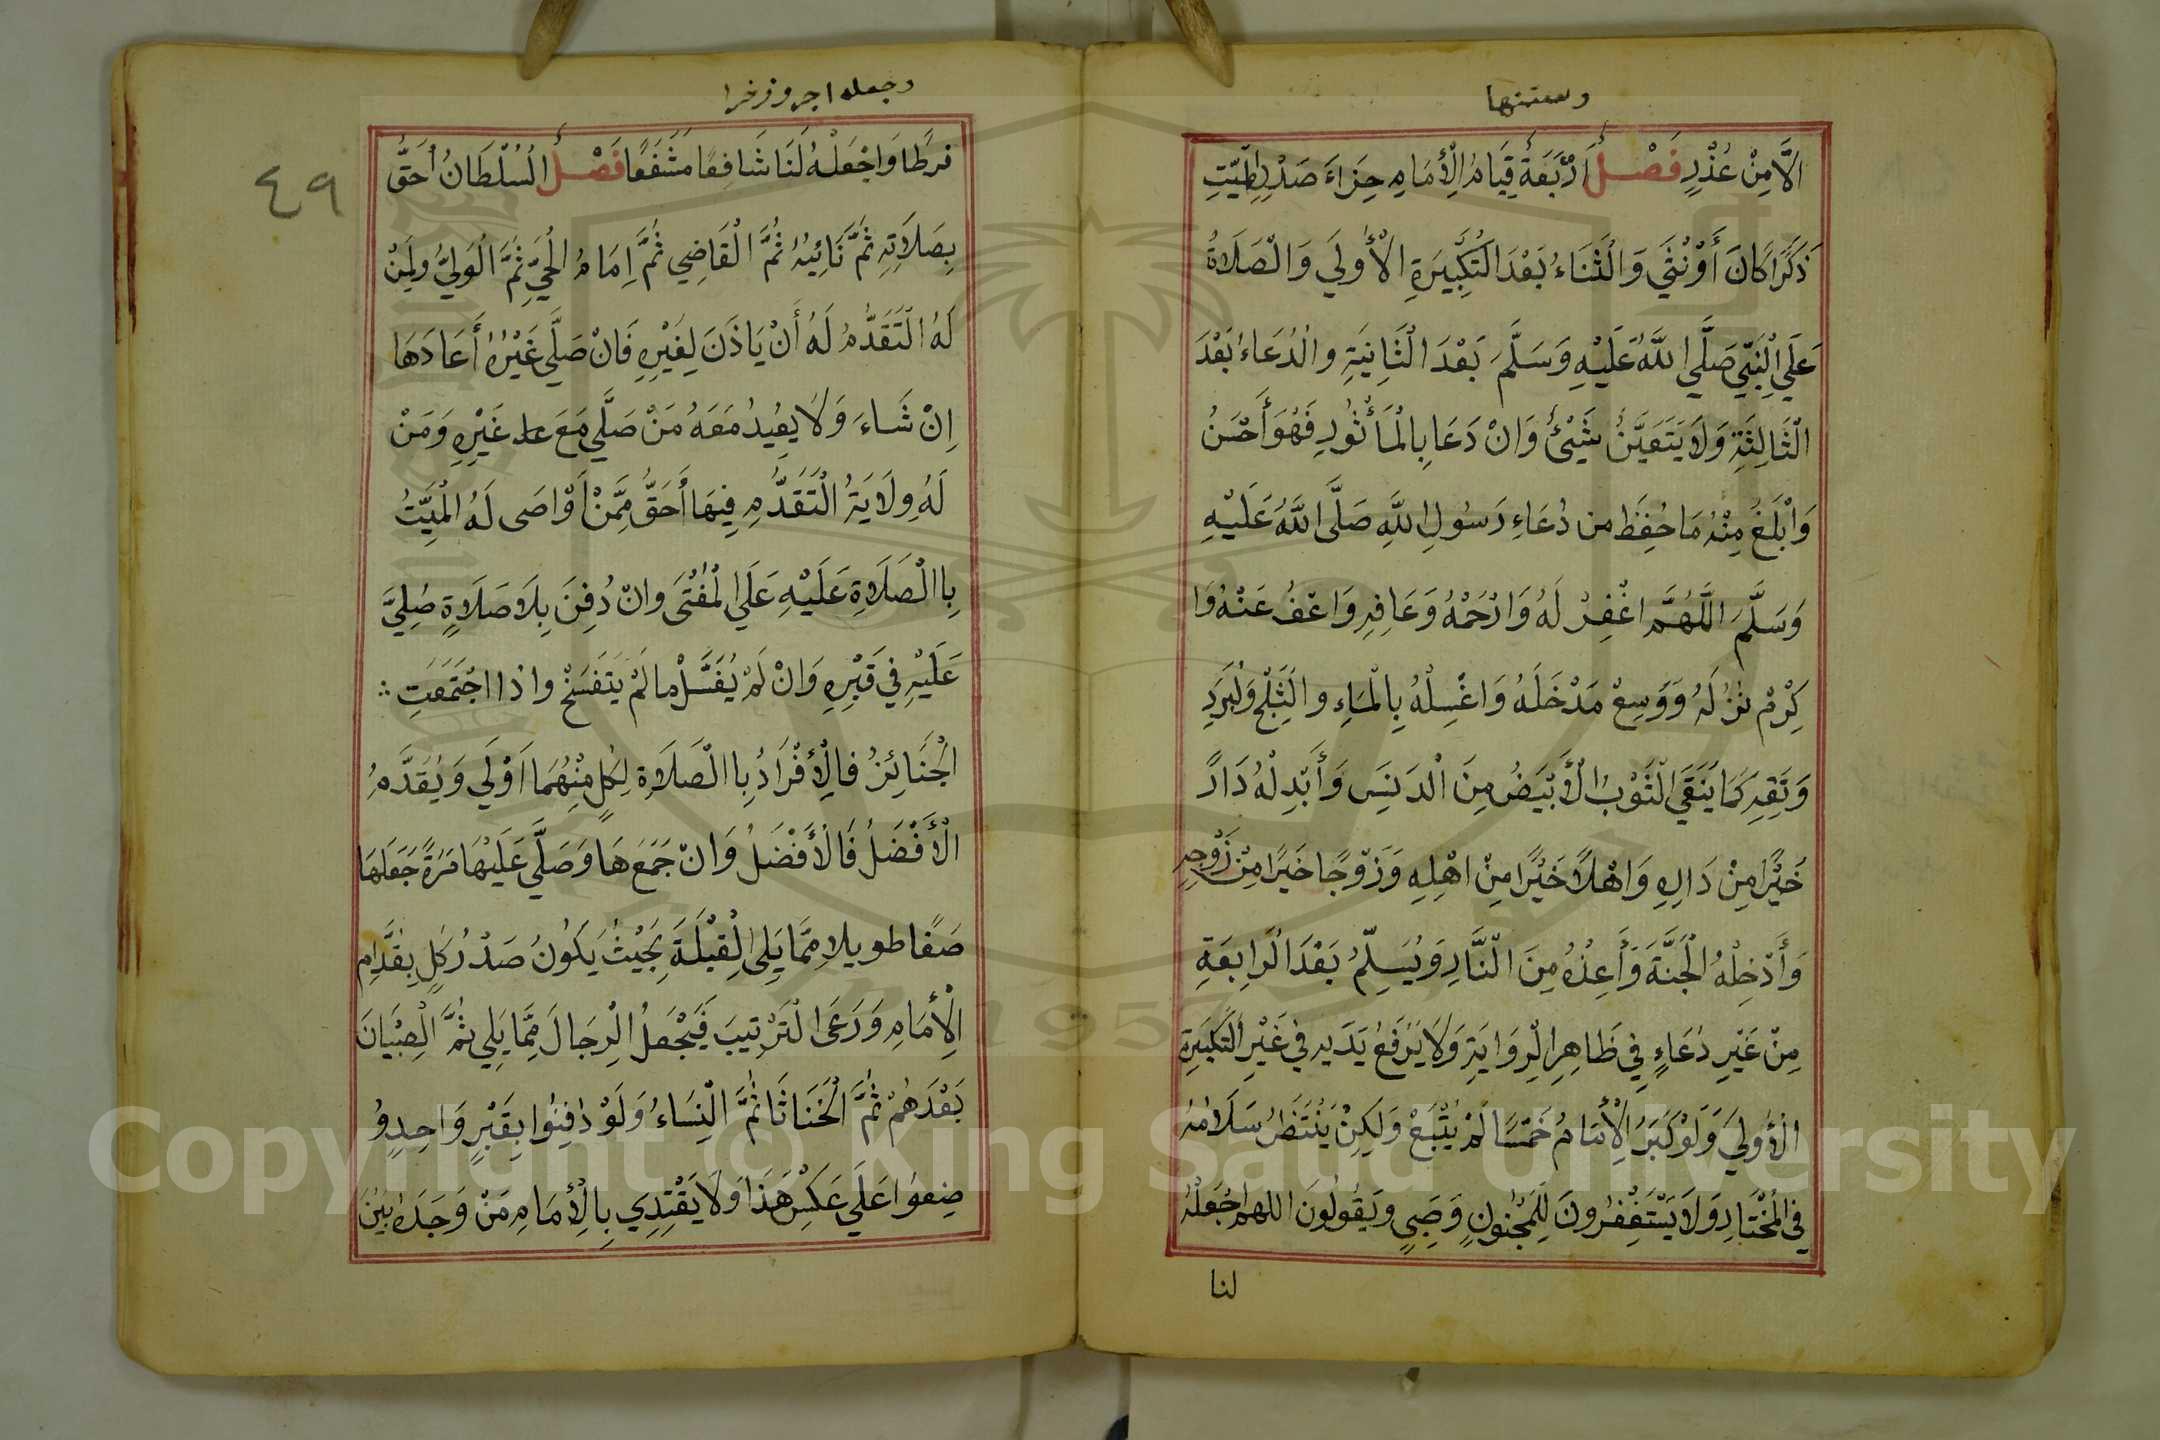 وسننها
اِلَّا مِنْ عُذْرٍ فَصْلٌ أَرْبَعَةٌ قِيَامُ الْأِمَامِ حِزَاءَ صَدْرِ الْمَيِّتِ
ذَكَرًا كَانَ أَوْ نْثَي وَالثَنَاءُ بَعْدَ التَكْبِيرَةِ الْأُولَي وَالْصَلَاةُ
عَلَي الْنَبِيّ صَلَّي اللَّهُ عَلَيْهِ وَسَلَّمَ بَعْدَ الْثَانِيَةِ والدُعَاءُ بَعْدَ
الْثَالِثَةِ وَلَا يَتَعَيَّنُ شَيْئٌ وَانْ دَعَا بِالْمَأْثُورِ فَهُوَ أَحْسَنُ
وَابْلَغُ مِنْهُ مَا حُفِظَ من دُعَاءِ رَسُولِ اللَّهِ صَلَّى اللَّهُ عَلَيْهِ
وَسَلَّمَ اللَّهُمَّ اغْفِرْ لَهُ وَارْحَمْهُ وَعَافِهِ وَاعْفُ عَنْهُ وَا
كِرْمْ نُزُلَهُ وَوَسِعْ مَدْخَلَهُ وَاغْسِلْهُ بِالْمَاءِ والثَلْجِ وَلْبَرَدِ
وَنَقِهِ كَمَا يُنَقَي الْثَوْبُ الْأَبْيَضُ مِنَ الْدَنَسِ وَأَبْدِلْهُ دَارً
خَيْرًا مِنْ دَارِهِ وَاهْلًا خَيْرًا مِنْ اهْلِهِ وَزَوْجًا خَيْرًا مِنْ زَوْجِهِ
وَأَدْخِلْهُ الْجَنَّةَ وَأَعِذْهُ مِنَ الْنَّارِ وَيُسَلِّمُ بَعْدَ الْرَابِعَةِ
مِنْ غَيْرِ دُعَاءٍ فِي ظَاهِرِ الْرِوَايَةِ وَلَا يَرْفَعُ يَدَيهِ فِي غَيْرِ التَكْبِيَرةِ
الْأُوليَ وَلَوْ كَبَرَ الْأِمَامُ خَمْسًا لَمْ يُتْبَعْ وَلَكِنْ يُنْتَظَرُ سَلَامُهُ
فِي الْمُخْتَارِ وَلَا يَسْتَغْفِرُونَ لِلْمَجْنُونٍ وَصَبِيٍ وَيَقُولُونَ اللهم اجْعَلْهُ
لنا
وجعله اجر وذخرا
فرَطًا وَاجْعَلْهُ لَنَا شَافِعًا مُشَفَعًا فَصْلٌ السُلْطَانُ أحَقُّ
بِصَلَاتِهِ ثُمَّ نَائِبُهُ ثُمَّ الْقَاضِي ثُمَّ اِمَامُ الْحَيِّ ثُمَّ الْوَليُّ ولِمَنْ
لَهُ الْتَقَدُّمُ لَهُ أَنْ يَاذَنَ لِغَيْرِهِ فَانْ صَلَّي غَيْرُهُ أَعَادَهَا
اِنْ شَاءَ وَلَا يُعِيدُ مَعَهُ مَنْ صَلَّي مَعَ غَيْرِهِ وَمَنْ
لَهُ وِلَايَةُ الْتَقَدُّمِ فِيهَا أَحَقُّ مِمَّنْ اَوْاصَى لَهُ الْمَيِّتُ
بِاالْصَلَاةِ عَلَيْهِ عَلَي الْمُفْتَى وانْ دُفِنَ بِلَا صَلَاةٍ صُلِيَّ
عَلَيْهِ فِي قَبْرِهِ وَانْ لَمْ يُغَسَّلْ مالَمْ يَتَفَسَخْ واذا اجْتَمَعَتِ
الْجَنَائِزُ فالْأِفْرَادُ بِاالْصَلَاةِ لِكُلٍ مِنْهُمَا اَوْلَي وَيُقَدَّمُ
الْأَفْضَلُ فَالْأَفْضَلُ وَانْ جَمَعَهَا وَصَلَّي عَلَيْهَا مَرَةً جَعَلَهَا
صَفًا طويلا مِمَّا يَلِي الْقِبْلَةَ بِحَيْثُ يَكُونُ صَدْرُ كُلٍ بِقُدَّامِ
الْأِمَامِ وَرَعَى الْتَرْتِيبَ فَيَجْعَلُ الْرِجَالَ مِمَّا يَلِي ثُمَّ الْصِبْيَانَ
بَعْدَهُمْ ثُمَّ الْخَنَاثَا ثُمَّ الْنِسَاءُ وَلَوْ دُفِنُوا بِقَبْرٍ وَاحِدٍ وُ
ضِعوُا عَلَي عَكْسِ هَذَا وَلَا يَقْتِدِي بِالْأِمَامِ مَنْ وَجَدَهُ بَيْنَ
٤٩
Copyright © King Saud University
1957